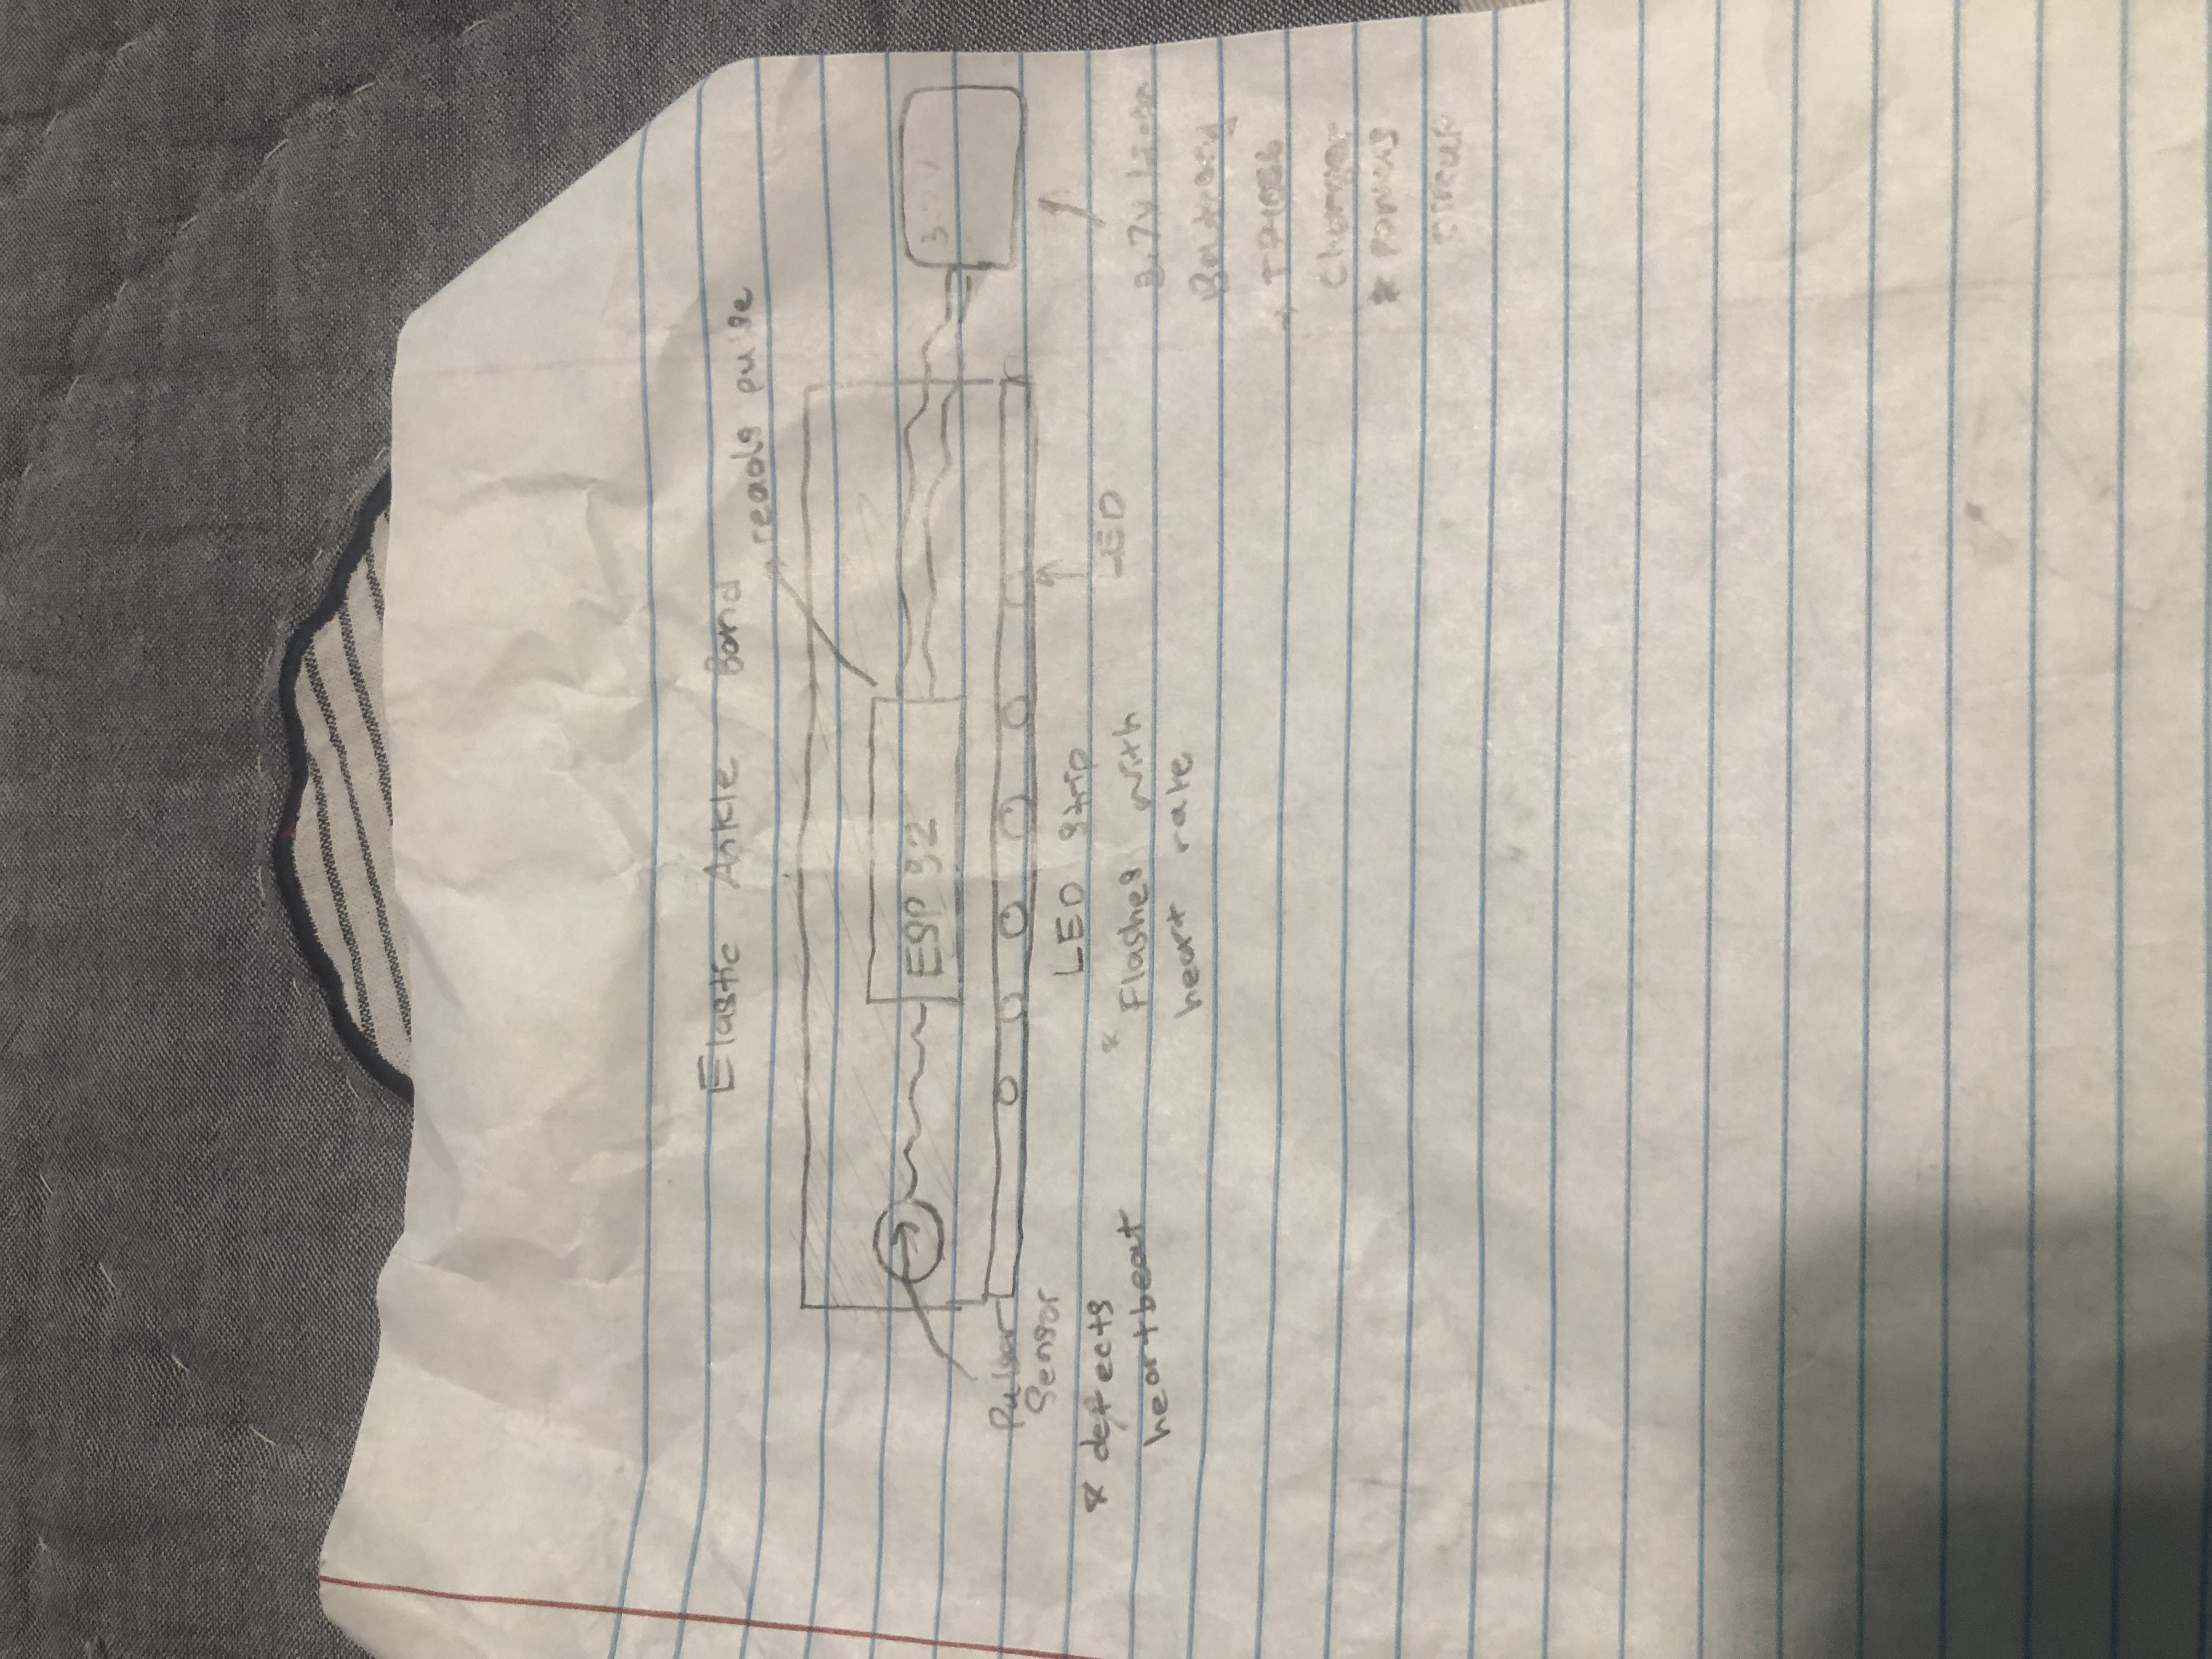 Elastic Ankle Band
reads pulse
ESP 32
3.7V
Pulser
Sensor
* detects
heartbeat
LED strip
* Flashes with
heart rate
LED
3.7V Li-ion
Battery
Charger
* powers
circuit